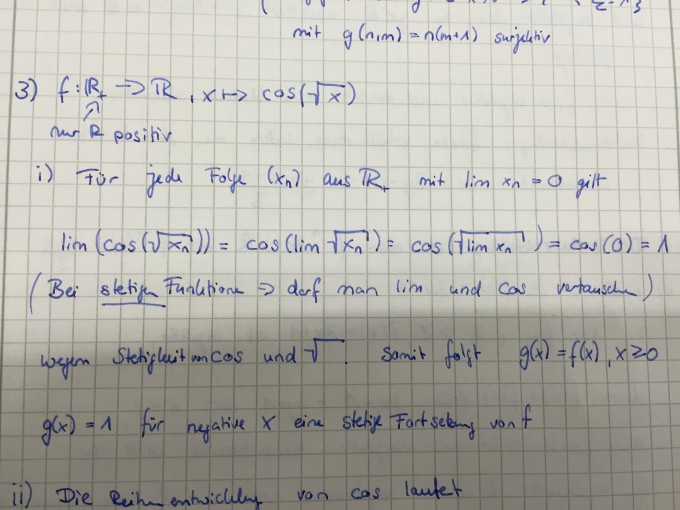 mit g(n,m) = n(m+1) surjektiv
3) f: ℝ₊ → ℝ, x ↦ cos(√x)
nur ℝ positiv
i) Für jede Folge (xn) aus ℝ₊ mit lim xn = 0 gilt
lim(cos(√xn)) = cos(lim √xn) = cos(√lim xn) = cos(0) = 1
(Bei stetigen Funktionen ⇒ darf man lim und cos vertauschen)
wegen Stetigkeit von cos und √ . Somit folgt g(x) = f(x), x≥0
g(x) = 1 für negative x eine stetige Fortsetzung von f
ii) Die Reihenentwicklung von cos lautet